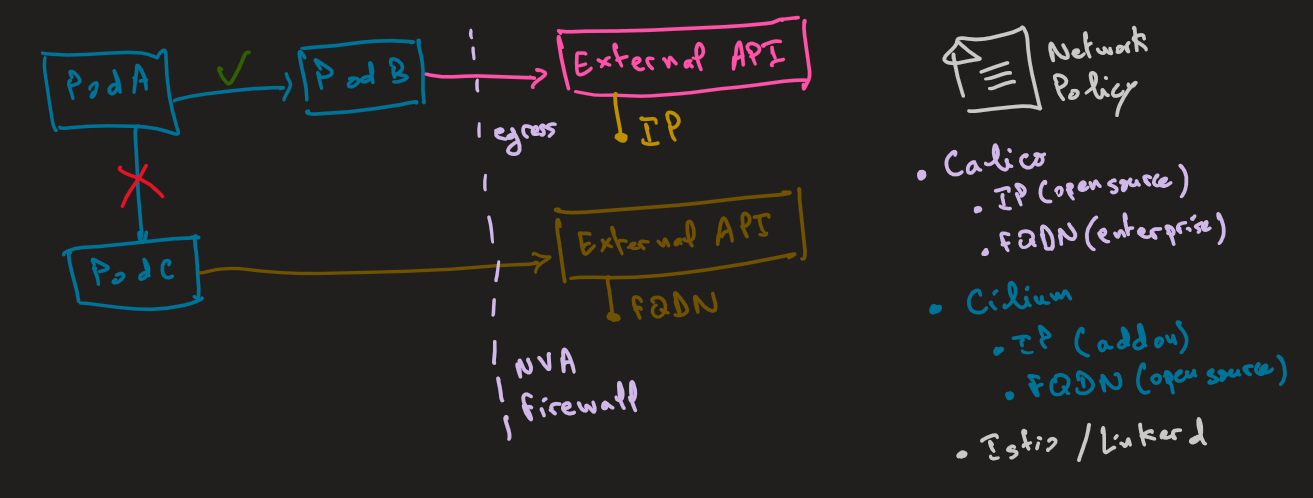 Pod A
Pod B
External API
IP
egress
Pod C
External API
FQDN
NVA
firewall
Network
Policy
• Calico
• IP (open source)
• FQDN (enterprise)
• Cilium
• IP (addon)
• FQDN (open source)
• Istio / Linkerd